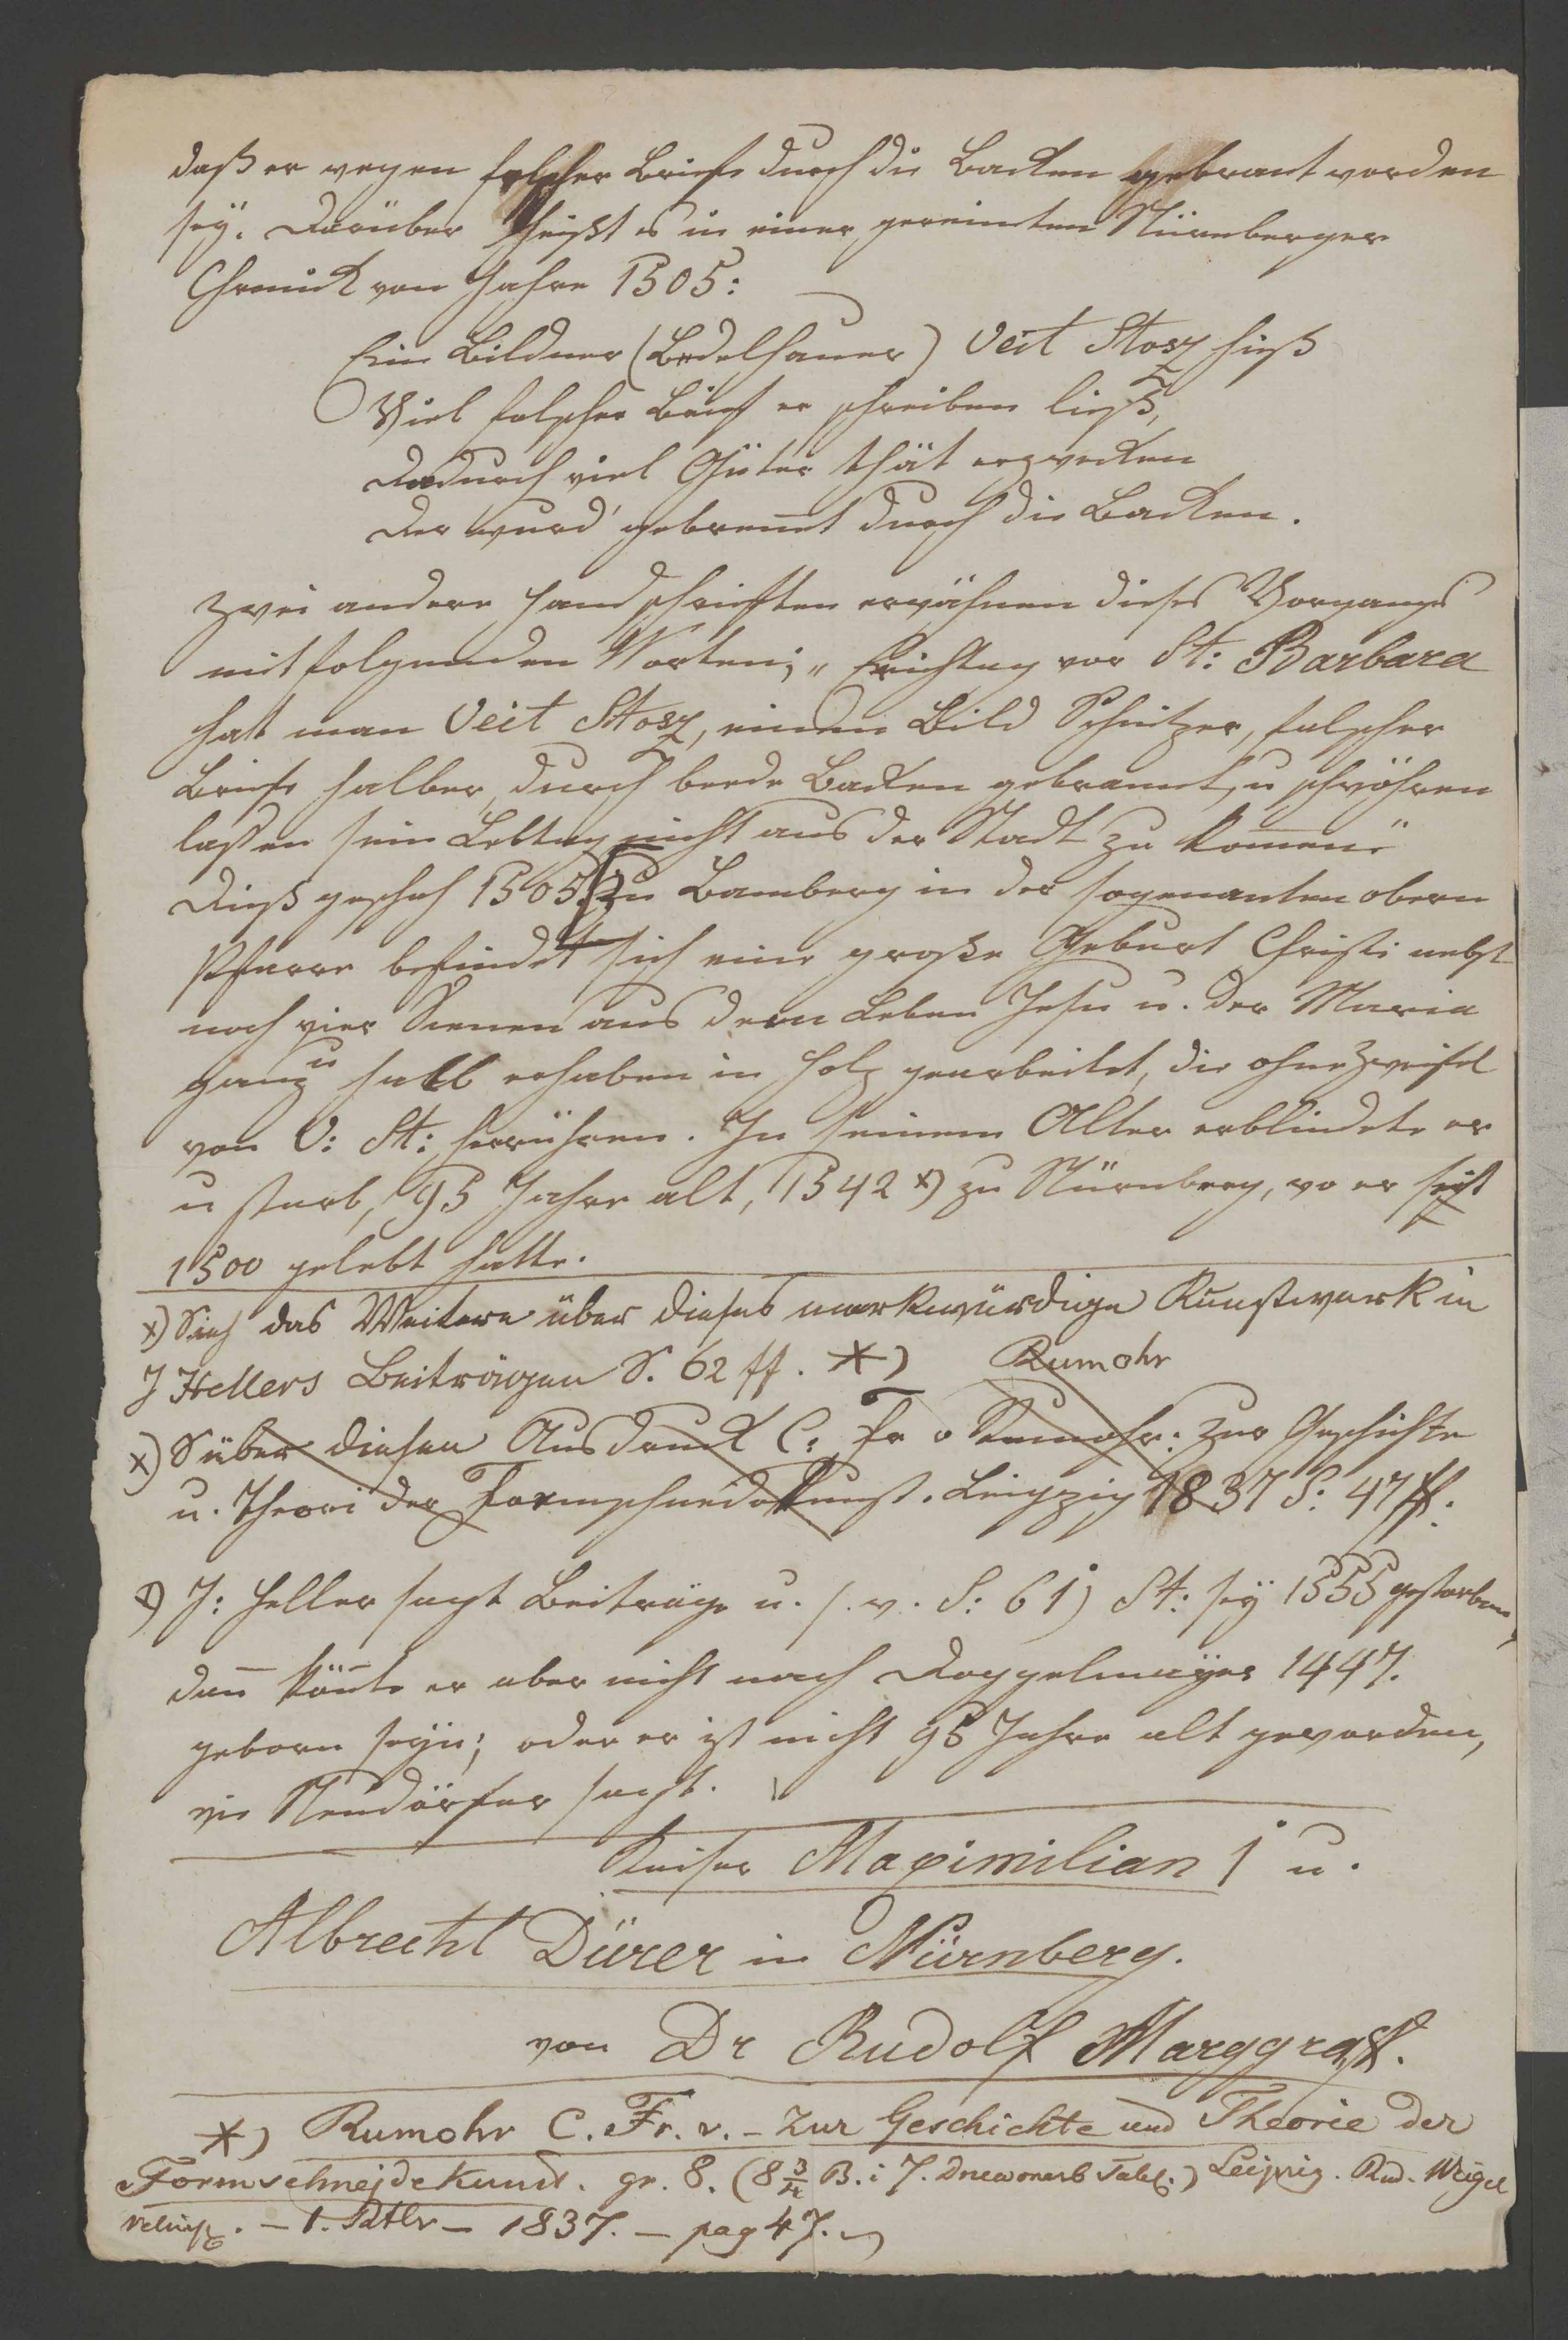 daß er wegen falscher Briefe durch die Backen gebrant worden
sey. Darüber heißt es in einer gereimten Nürnberger
Chronick vom Jahre 1505:
Ein Bildner (Bedelhauer) Veit Stosz hieß
Viel falscher Brief er schreiben ließ,
Dadurch viel Güter thät erzwecken
Der wurd' gebrennt durch die Backen.
Zwei andere Handschriften erwähnen dieses Vorgangs
mit folgenden Worten; „Erichtag vor St: Barbara
hat man Veit Stosz, einen Bild Schnitzer, falscher
Briefe halber, durch beede Backen gebrannt, u schwöhren
laßen sein Lebtag nicht aus der Stadt zu kom̄en"
Dieß geschah 1503. Zu Bamberg in der sogenanten obern
Pfarre befindet sich eine große Geburt Christi nebst
noch vier Scenen aus dem Leben Jesu u. der Maria
ganz u halb erhaben in Holz gearbeitet, die ohne Zweifel
von V: St: herrühren. In seinem Alter erblindete er
u starb, 95 Jahre alt, 1542 x) zu Nürnberg, wo er seit
1500 gelebt hatte.
x) Sieh das Weitere über dieses merkwürdige Kunstwerk in
J Hellers Beiträgen S. 62 ff. *) Rumohr
x) S über diesen Ausdruck C. Fr v Rumohr: zur Geschichte
u. Theori der Formschneidekunst. Leipzig 1837 S: 47 ff.
x) J: Heller sagt Beiträge u. s. w. S: 61) St: sey 1555 gestorben,
dan̄ kön̄te er aber nicht nach Doppelmayer 1447.
geboren seyn; oder er ist nicht 95 Jahre alt geworden,
wie Neudörfer sagt.
Kaiser Maximilian I u.
Albrecht Dürer in Nürnberg.
von Dr Rudolf Marggraff.
*) Rumohr C. Fr. v. - Zur Geschichte und Theorie der
Formschneidekunst. gr. 8. (8 3/4 B. i 7. Tabel.) Leipzig. Rud. Weigel
- 1. Rtlr - 1837. - pag 47.